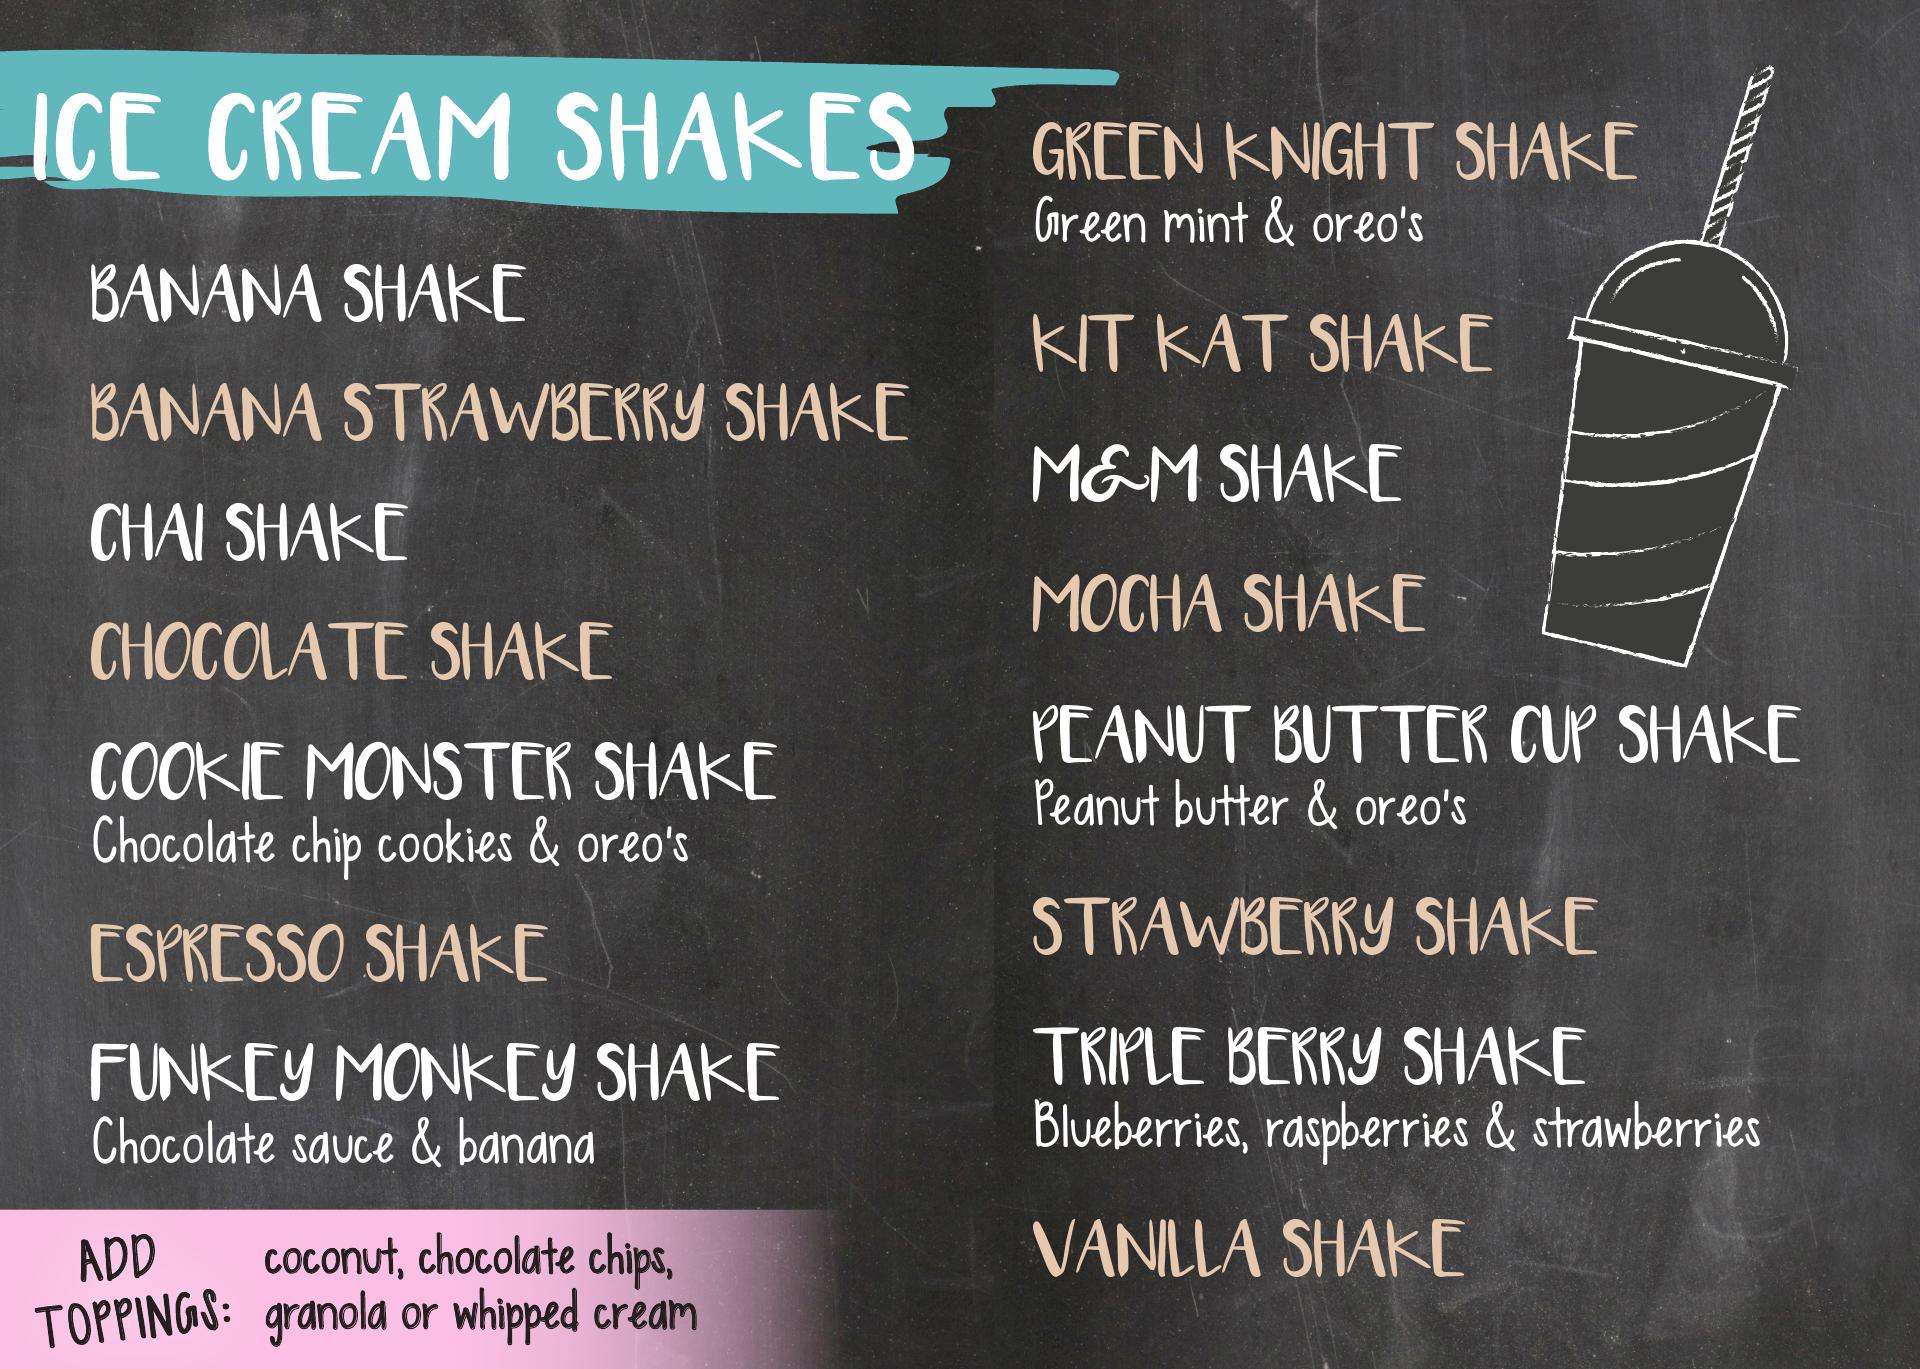 ICE CREAM SHAKES
BANANA SHAKE
BANANA STRAWBERRY SHAKE
CHAI SHAKE
CHOCOLATE SHAKE
COOKIE MONSTER SHAKE
Chocolate chip cookies & oreo's
ESPRESSO SHAKE
FUNKEY MONKEY SHAKE
Chocolate sauce & banana
ADD
TOPPINGS:
coconut, chocolate chips,
granola or whipped cream
GREEN KNIGHT SHAKE
Green mint & oreo's
KIT KAT SHAKE
M&M SHAKE
MOCHA SHAKE
PEANUT BUTTER CUP SHAKE
Peanut butter & oreo's
STRAWBERRY SHAKE
TRIPLE BERRY SHAKE
Blueberries, raspberries & strawberries
VANILLA SHAKE